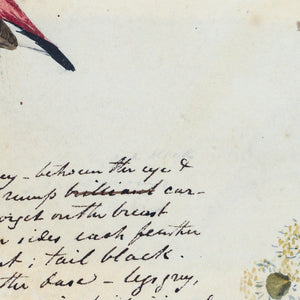 ey – between the eye &
rump brilliant car-
orget on the breast
r sides each feather
nt ; tail black.
the base – legs grey,